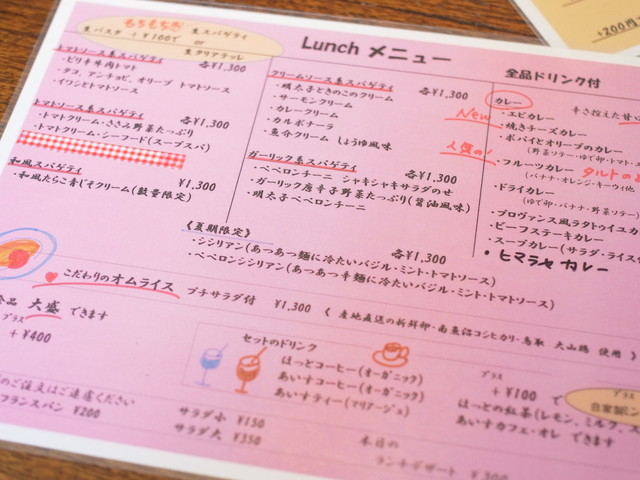 もちもち
生パスタ +¥100で
生スパゲティ
or
生タリアテッレ
Lunch メニュー
全品ドリンク付
+200円
トマトソース系スパゲティ 各¥1,300
・ピリ辛牛肉トマト
・タコ、アンチョビ、オリーブ トマトソース
・イワシとトマトソース
トマトソース系スパゲティ 各¥1,300
・トマトクリーム・ささみ野菜たっぷり
・トマトクリーム・シーフード(スープスパ)
和風スパゲティ ¥1,300
・和風たらこ青じそクリーム(数量限定)
クリームソース系スパゲティ 各¥1,300
・明太子ときのこのクリーム
・サーモンクリーム
・カレークリーム
・カルボナーラ
・魚介クリーム しょうゆ風味
ガーリック系スパゲティ 各¥1,300
・ペペロンチーニ シャキシャキサラダのせ
・ガーリック唐辛子野菜たっぷり(醤油風味)
・明太子ペペロンチーニ
《夏期限定》 各¥1,300
・シシリアン(あつあつ麺に冷たいバジル・ミント・トマトソース)
・ペペロンシシリアン(あつあつ辛麺に冷たいバジル・ミント・トマトソース)
カレー 辛さ控えた甘
・エビカレー
New
・焼きチーズカレー
・ポパイとオリーブのカレー
(野菜ソテー・ゆで卵・トマト
人気の!
・フルーツカレー タルトの
(バナナ・オレンジ・キーウィ他
・ドライカレー
(ゆで卵・バナナ・野菜ソテー)
・プロヴァンス風ラタトゥイユカ
・ビーフステーキカレー
・スープカレー(サラダ・ライス
・ヒマラヤ カレー
こだわりのオムライス プチサラダ付 ¥1,300 《 産地直送の新鮮卵・南魚沼コシヒカリ・鳥取 大山鶏 使用 》
全品 大盛 できます
プラス
+¥400
セットのドリンク
ほっとコーヒー(オーガニック)
あいすコーヒー(オーガニック)
あいすティー(マリアージュ)
プラス
+¥100 で
ほっとの紅茶(レモン、ミルク、ス
あいすカフェ・オレ できます
プラス
自家製ミン
のご注文はご遠慮ください
フランスパン ¥200
サラダ小 ¥150
サラダ大 ¥350
本日の
ランチデザート ¥300